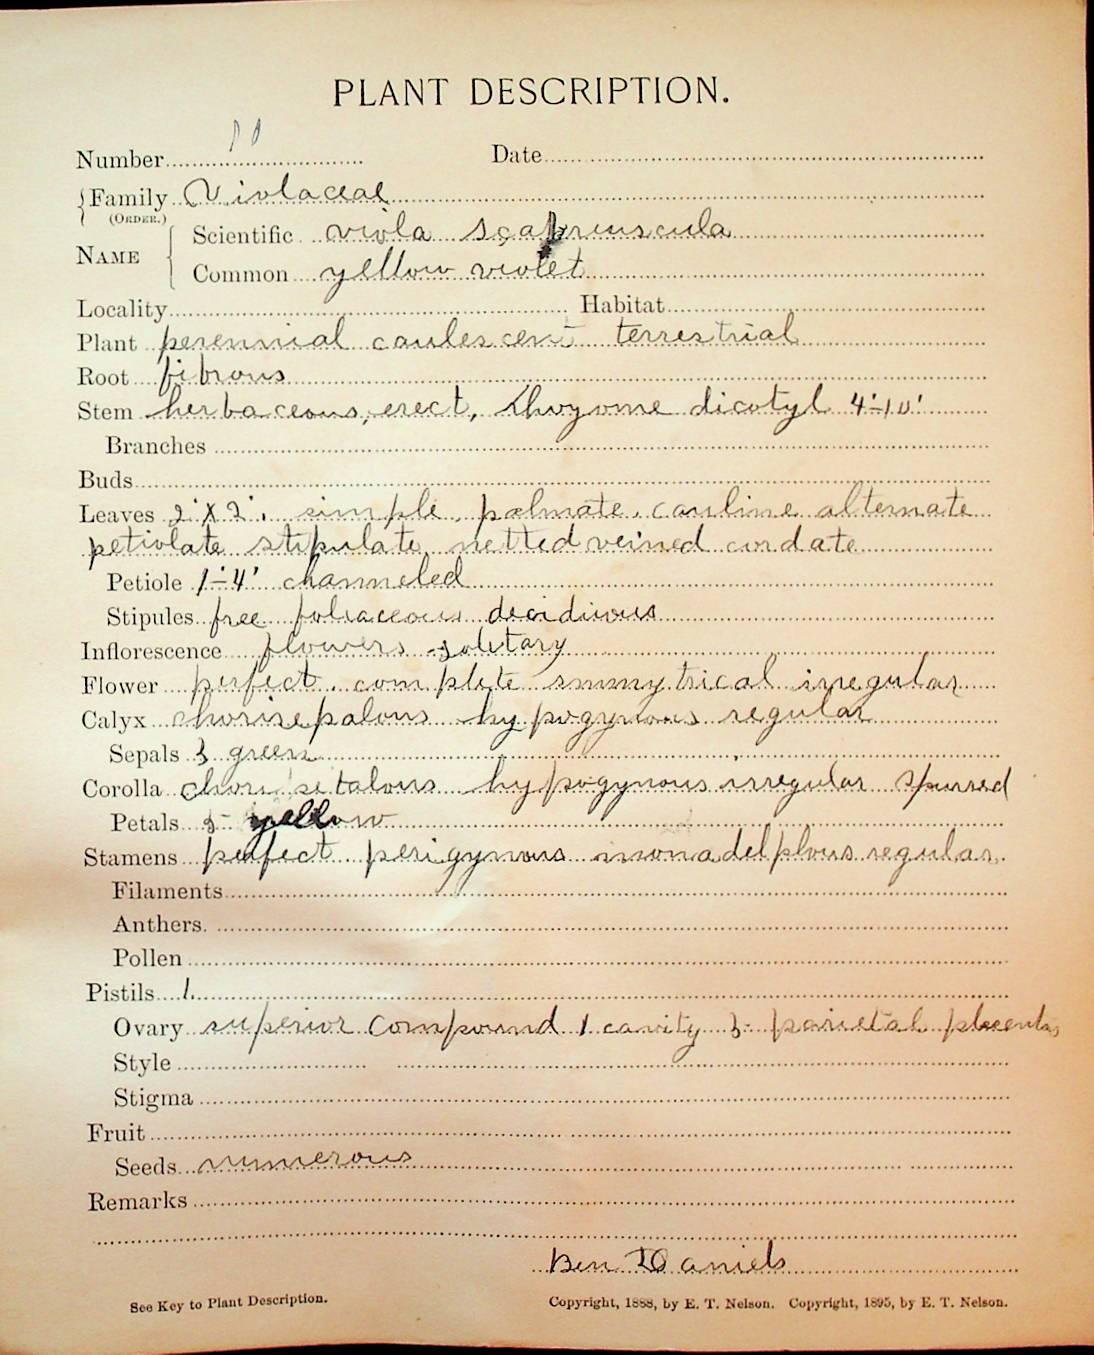 PLANT DESCRIPTION.
Number
Date
Family Violaceae
(ORDER.)
NAME
Scientific viola scabriuscula
Common yellow violet
Locality Habitat
Plant perennial caulescent terrestrial
Root fibrous
Stem herbaceous, erect, rhizome dicotyl 4'-10'
Branches
Buds
Leaves 2' x 2'. simple, palmate. cauline alternate
petiolate stipulate netted veined cordate
Petiole 1'-4' channeled
Stipules free foliaceous decidious
Inflorescence flowers solitary
Flower perfect. complete smmytrical irregular
Calyx chorisepalous hypogynous regular
Sepals 5 green
Corolla hypogynous irregular spurred
Petals 5 yellow
Stamens perfect perigynous monadelphous regular.
Filaments
Anthers.
Pollen
Pistils 1.
Ovary superior compound 1 cavity 3 parietal placentas
Style
Stigma
Fruit
Seeds numerous
Remarks
Ben Daniels
See Key to Plant Description.
Copyright, 1888, by E. T. Nelson. Copyright, 1895, by E. T. Nelson.